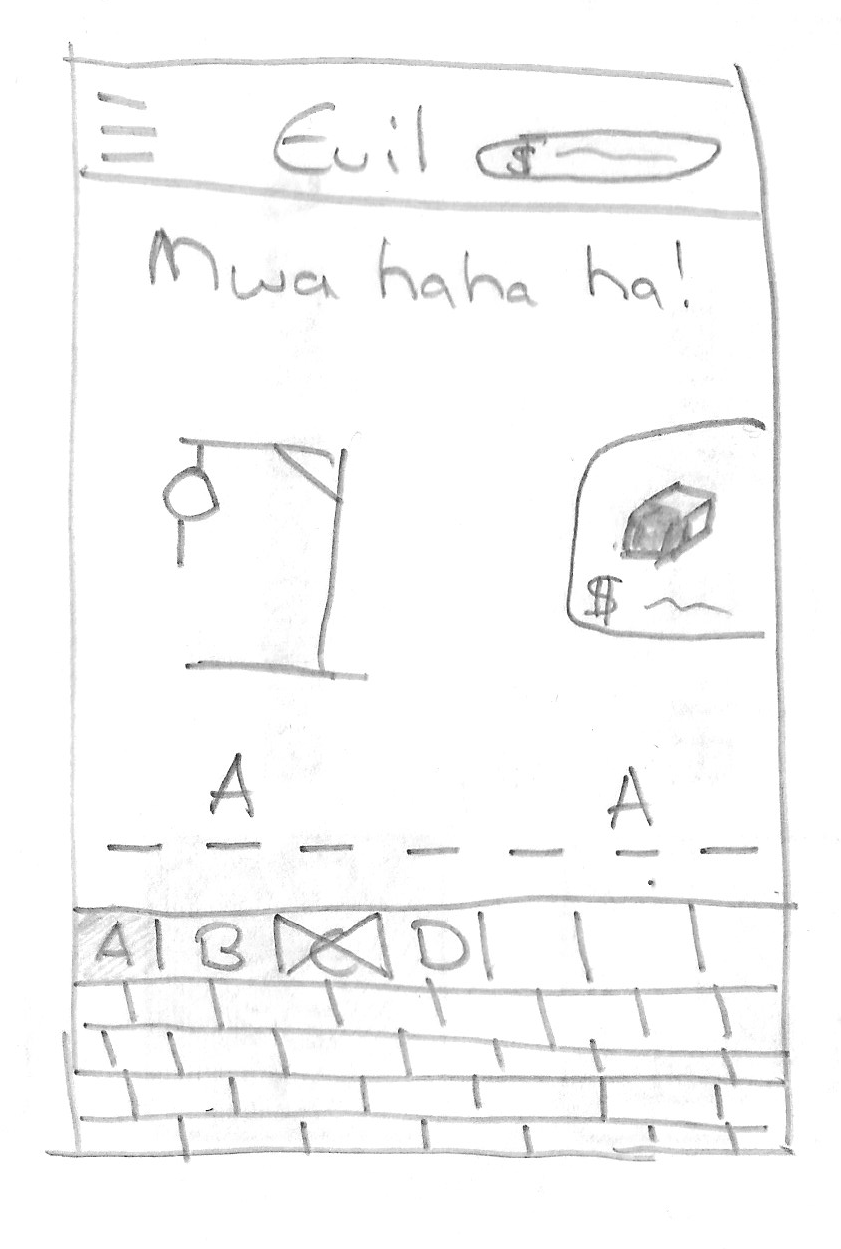 Evil $
Mwa haha ha!
$
A A
A B C D